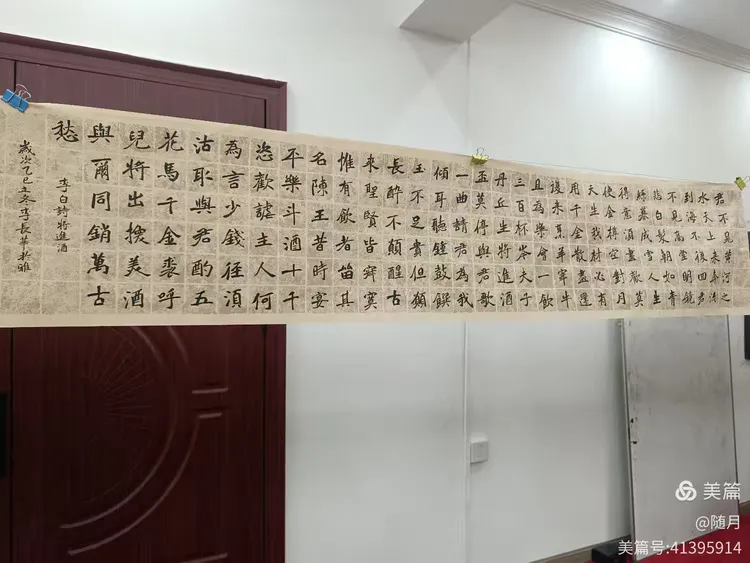 君不見黃河之
水天上來奔流
到海不復回君
不見高堂明鏡
悲白髮朝如青
絲暮成雪人生
得意須盡歡莫
使金樽空對月
天生我材必有
用千金散盡還
復來烹羊宰牛
且為樂會一飲
三百杯岑夫子
丹丘生將進酒
盃莫停與君歌
一曲請君為我
傾耳聽鍾鼓饌
玉不足貴但願
長醉不願醒古
來聖賢皆寂寞
惟有飲者留其
名陳王昔時宴
平樂斗酒十千
恣歡謔主人何
為言少錢徑須
沽取與君酌五
花馬千金裘呼
兒將出換美酒
與爾同銷萬古
愁
李白詩將進酒
歲次乙巳立冬李長華於雅
美篇
@随月
美篇号:41395914